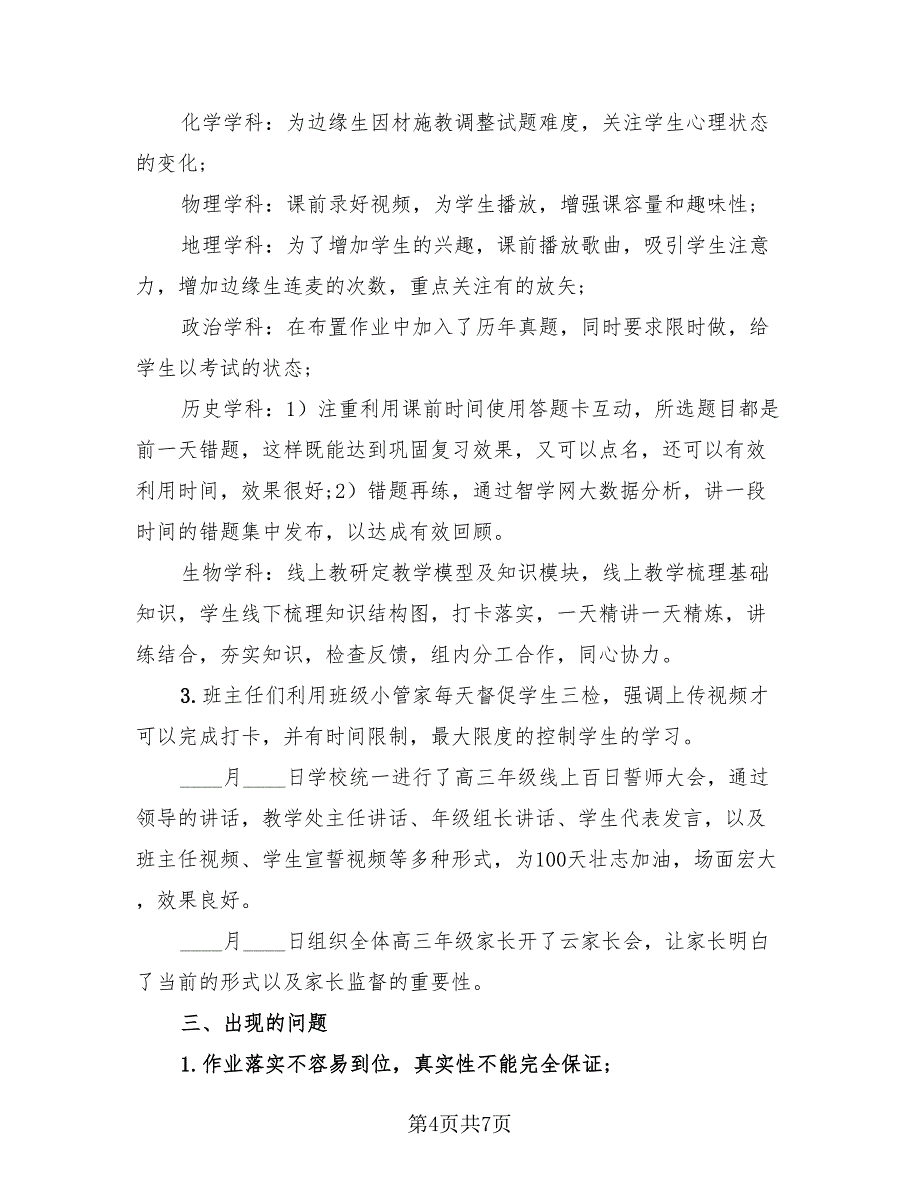 化学学科：为边缘生因材施教调整试题难度，关注学生心理状态
的变化;
物理学科：课前录好视频，为学生播放，增强课容量和趣味性;
地理学科：为了增加学生的兴趣，课前播放歌曲，吸引学生注意
力，增加边缘生连麦的次数，重点关注有的放矢;
政治学科：在布置作业中加入了历年真题，同时要求限时做，给
学生以考试的状态;
历史学科：1）注重利用课前时间使用答题卡互动，所选题目都是
前一天错题，这样既能达到巩固复习效果，又可以点名，还可以有效
利用时间，效果很好;2）错题再练，通过智学网大数据分析，讲一段
时间的错题集中发布，以达成有效回顾。
生物学科：线上教研定教学模型及知识模块，线上教学梳理基础
知识，学生线下梳理知识结构图，打卡落实，一天精讲一天精炼，讲
练结合，夯实知识，检查反馈，组内分工合作，同心协力。
3.班主任们利用班级小管家每天督促学生三检，强调上传视频才
可以完成打卡，并有时间限制，最大限度的控制学生的学习。
____月____日学校统一进行了高三年级线上百日誓师大会，通过
领导的讲话，教学处主任讲话、年级组长讲话、学生代表发言，以及
班主任视频、学生宣誓视频等多种形式，为100天壮志加油，场面宏大
，效果良好。
____月____日组织全体高三年级家长开了云家长会，让家长明白
了当前的形式以及家长监督的重要性。
三、出现的问题
1.作业落实不容易到位，真实性不能完全保证;
第4页共7页